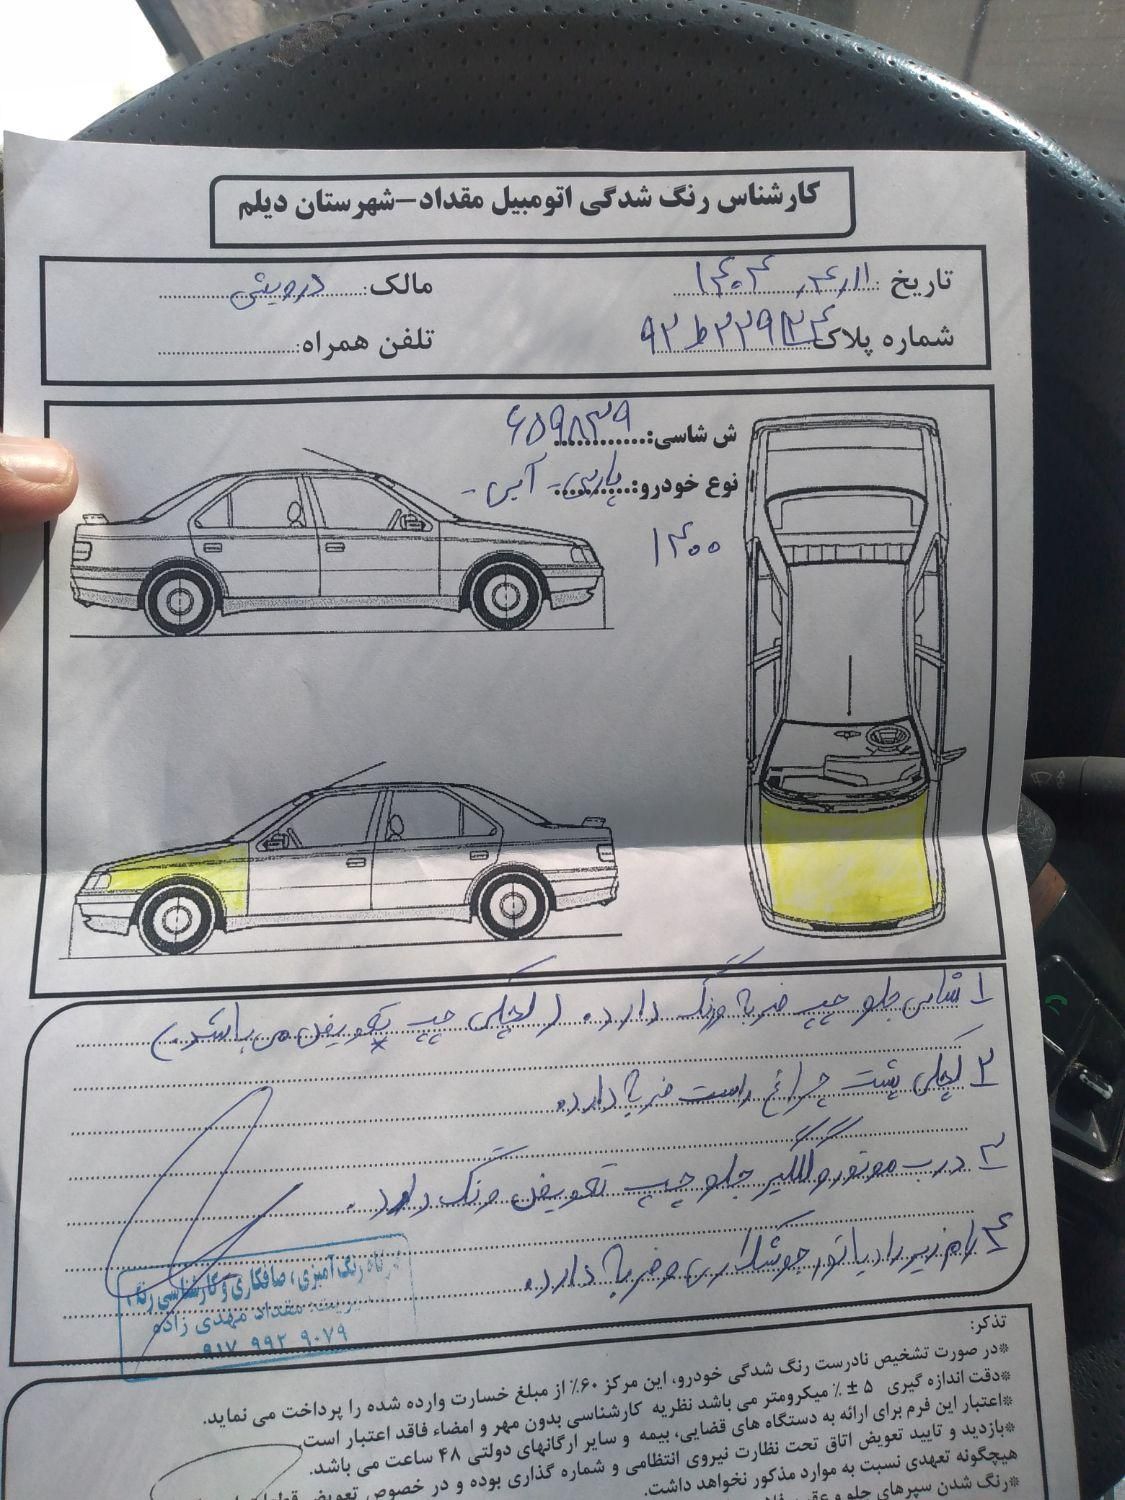 کارشناس رنگ شدگی اتومبیل مقداد-شهرستان دیلم
تاریخ: ۱۴۰۴٫۴٫۱۱
مالک: درویشی
شماره پلاک ۹۲ط۲۲۹
تلفن همراه:
ش شاسی: ۶۵۹۸۳۹
نوع خودرو: پارس - آبی -
۱۴۰۰
۱ شاسی جلو چپ ضربه ورنگ دارد. (لچکی چپ تعویض می باشد.)
۲ لچکی پشت چراغ راست ضربه دارد.
۳ درب موتور و گلگیر جلو چپ تعویض ورنگ دارد.
۴ رام زیر رادیاتور جوشکاری و ضربه دارد.
رنگ آمیزی، صافکاری و کارشناسی رنگ
مدیریت: مقداد مهدی زاده
۰۹۱۷ ۹۹۲ ۹۰۷۹
تذکر:
*در صورت تشخیص نادرست رنگ شدگی خودرو، این مرکز ۶۰٪ از مبلغ خسارت وارده شده را پرداخت می نماید.
*دقت اندازه گیری ۵ ± ٪ میکرومتر می باشد نظریه کارشناسی بدون مهر و امضاء فاقد اعتبار است.
*اعتبار این فرم برای ارائه به دستگاه های قضایی، بیمه و سایر ارگانهای دولتی ۴۸ ساعت می باشد.
*بازدید و تایید تعویض اتاق تحت نظارت نیروی انتظامی و شماره گذاری بوده و در خصوص تعویض
هیچگونه تعهدی نسبت به موارد مذکور نخواهد داشت.
*رنگ شدن سپرهای جلو و عقب